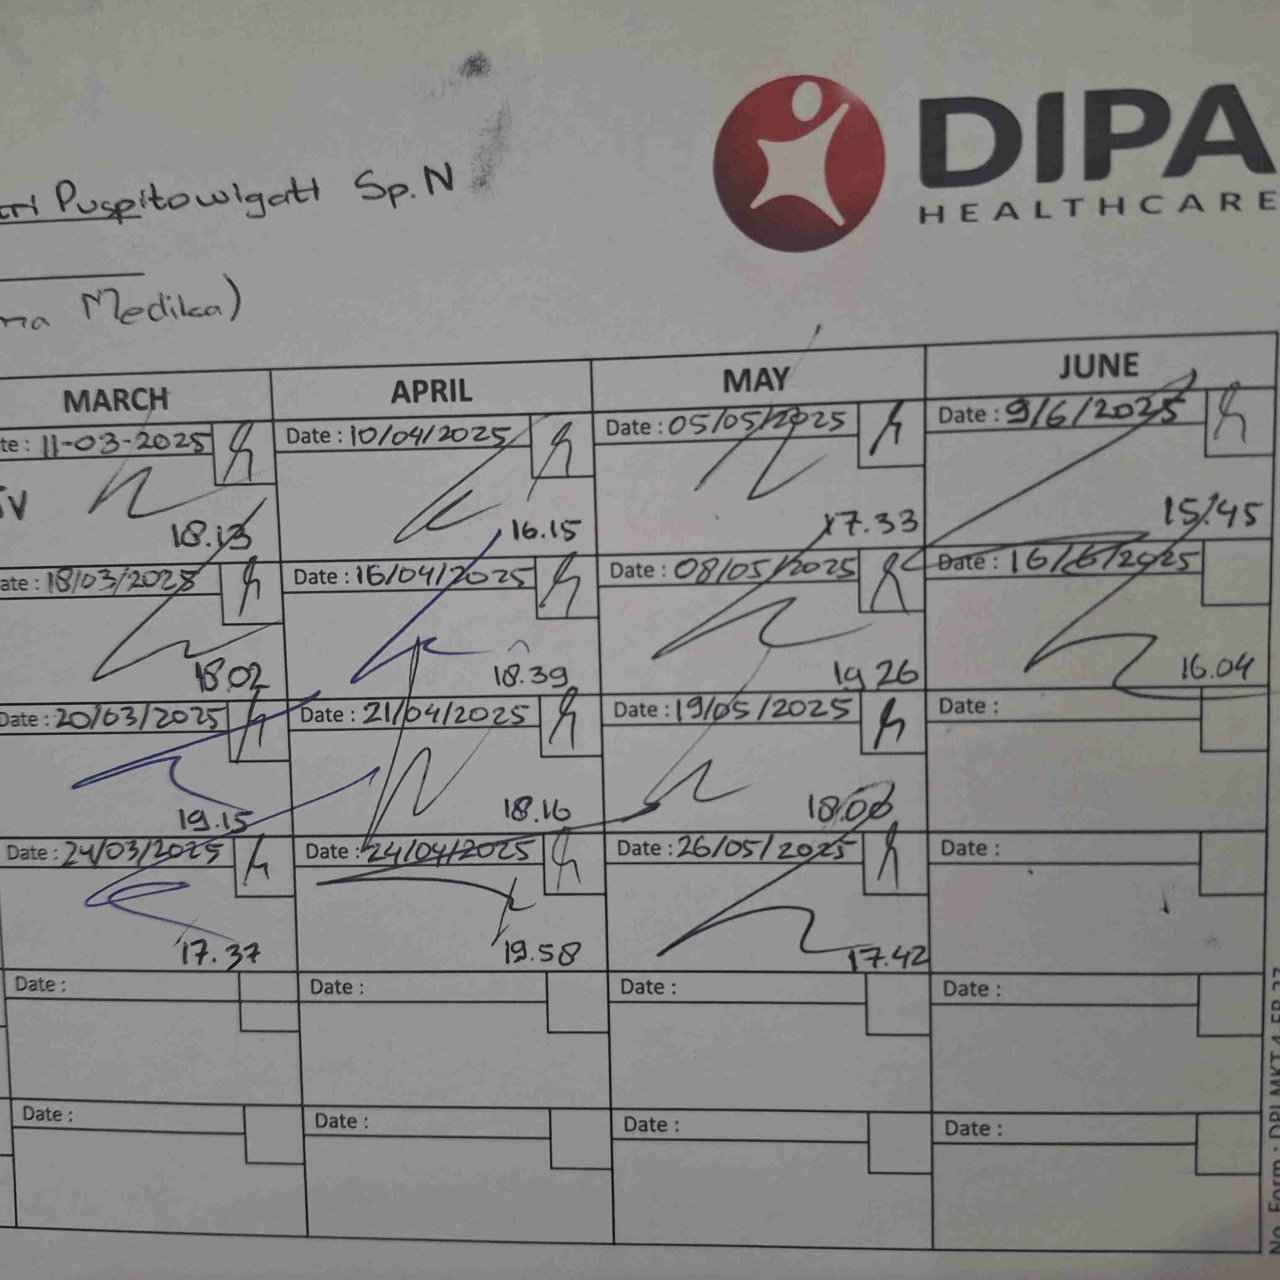 DIPA
HEALTHCARE
Puspitowigati Sp.N
Medika)
MARCH APRIL MAY JUNE
te : 11-03-2025 Date : 10/04/2025 Date : 05/05/2025 Date : 9/6/2025
18.13 16.15 17.33 15.45
ate : 18/03/2025 Date : 16/04/2025 Date : 08/05/2025 Date : 16/6/2025
18.02 18.39 19 26 16.04
Date : 20/03/2025 Date : 21/04/2025 Date : 19/05/2025 Date :
19.15 18.16 18.06
Date : 24/03/2025 Date : 24/04/2025 Date : 26/05/2025 Date :
17.37 19.58 17.42
Date : Date : Date : Date :
Date : Date : Date : Date :
No. Form : DPI.MKT.4.FR